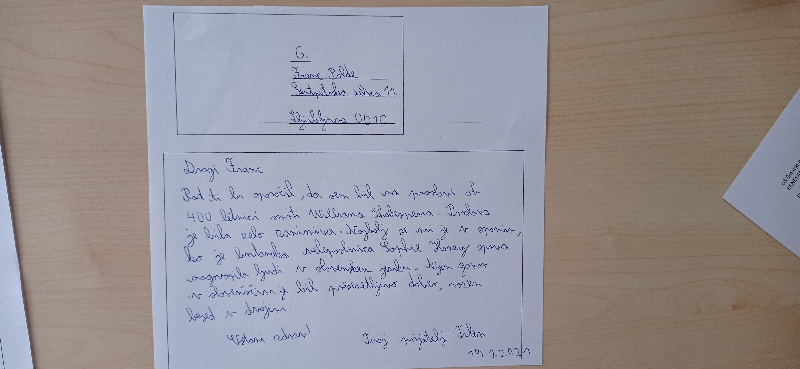 G.
Franc Polde
ulica 11
Ljubljana 0010
Dragi Franc
Rad bi ti sporočil, da sem bil na proslavi ob
400 letnici smrti Williama Shakespeara. Proslava
je bila zelo zanimiva. Najbolj se mi je v spomin,
ko je britanska veleposlanica Sophie Honey sprva
nagovorila ljudi v slovenskem jeziku. Njen govor
v slovenščini je bil presenetljivo dober, razen
besed v dvojini.
Ostani zdrav! Tvoj prijatelj Tilen
19. 1. 2021